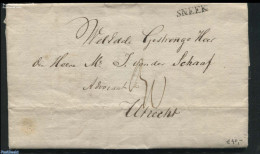 SNEEK
Weledele Gestrenge Heer
de Heere Mr. J. van der Schaaf
Advocaat
Utrecht